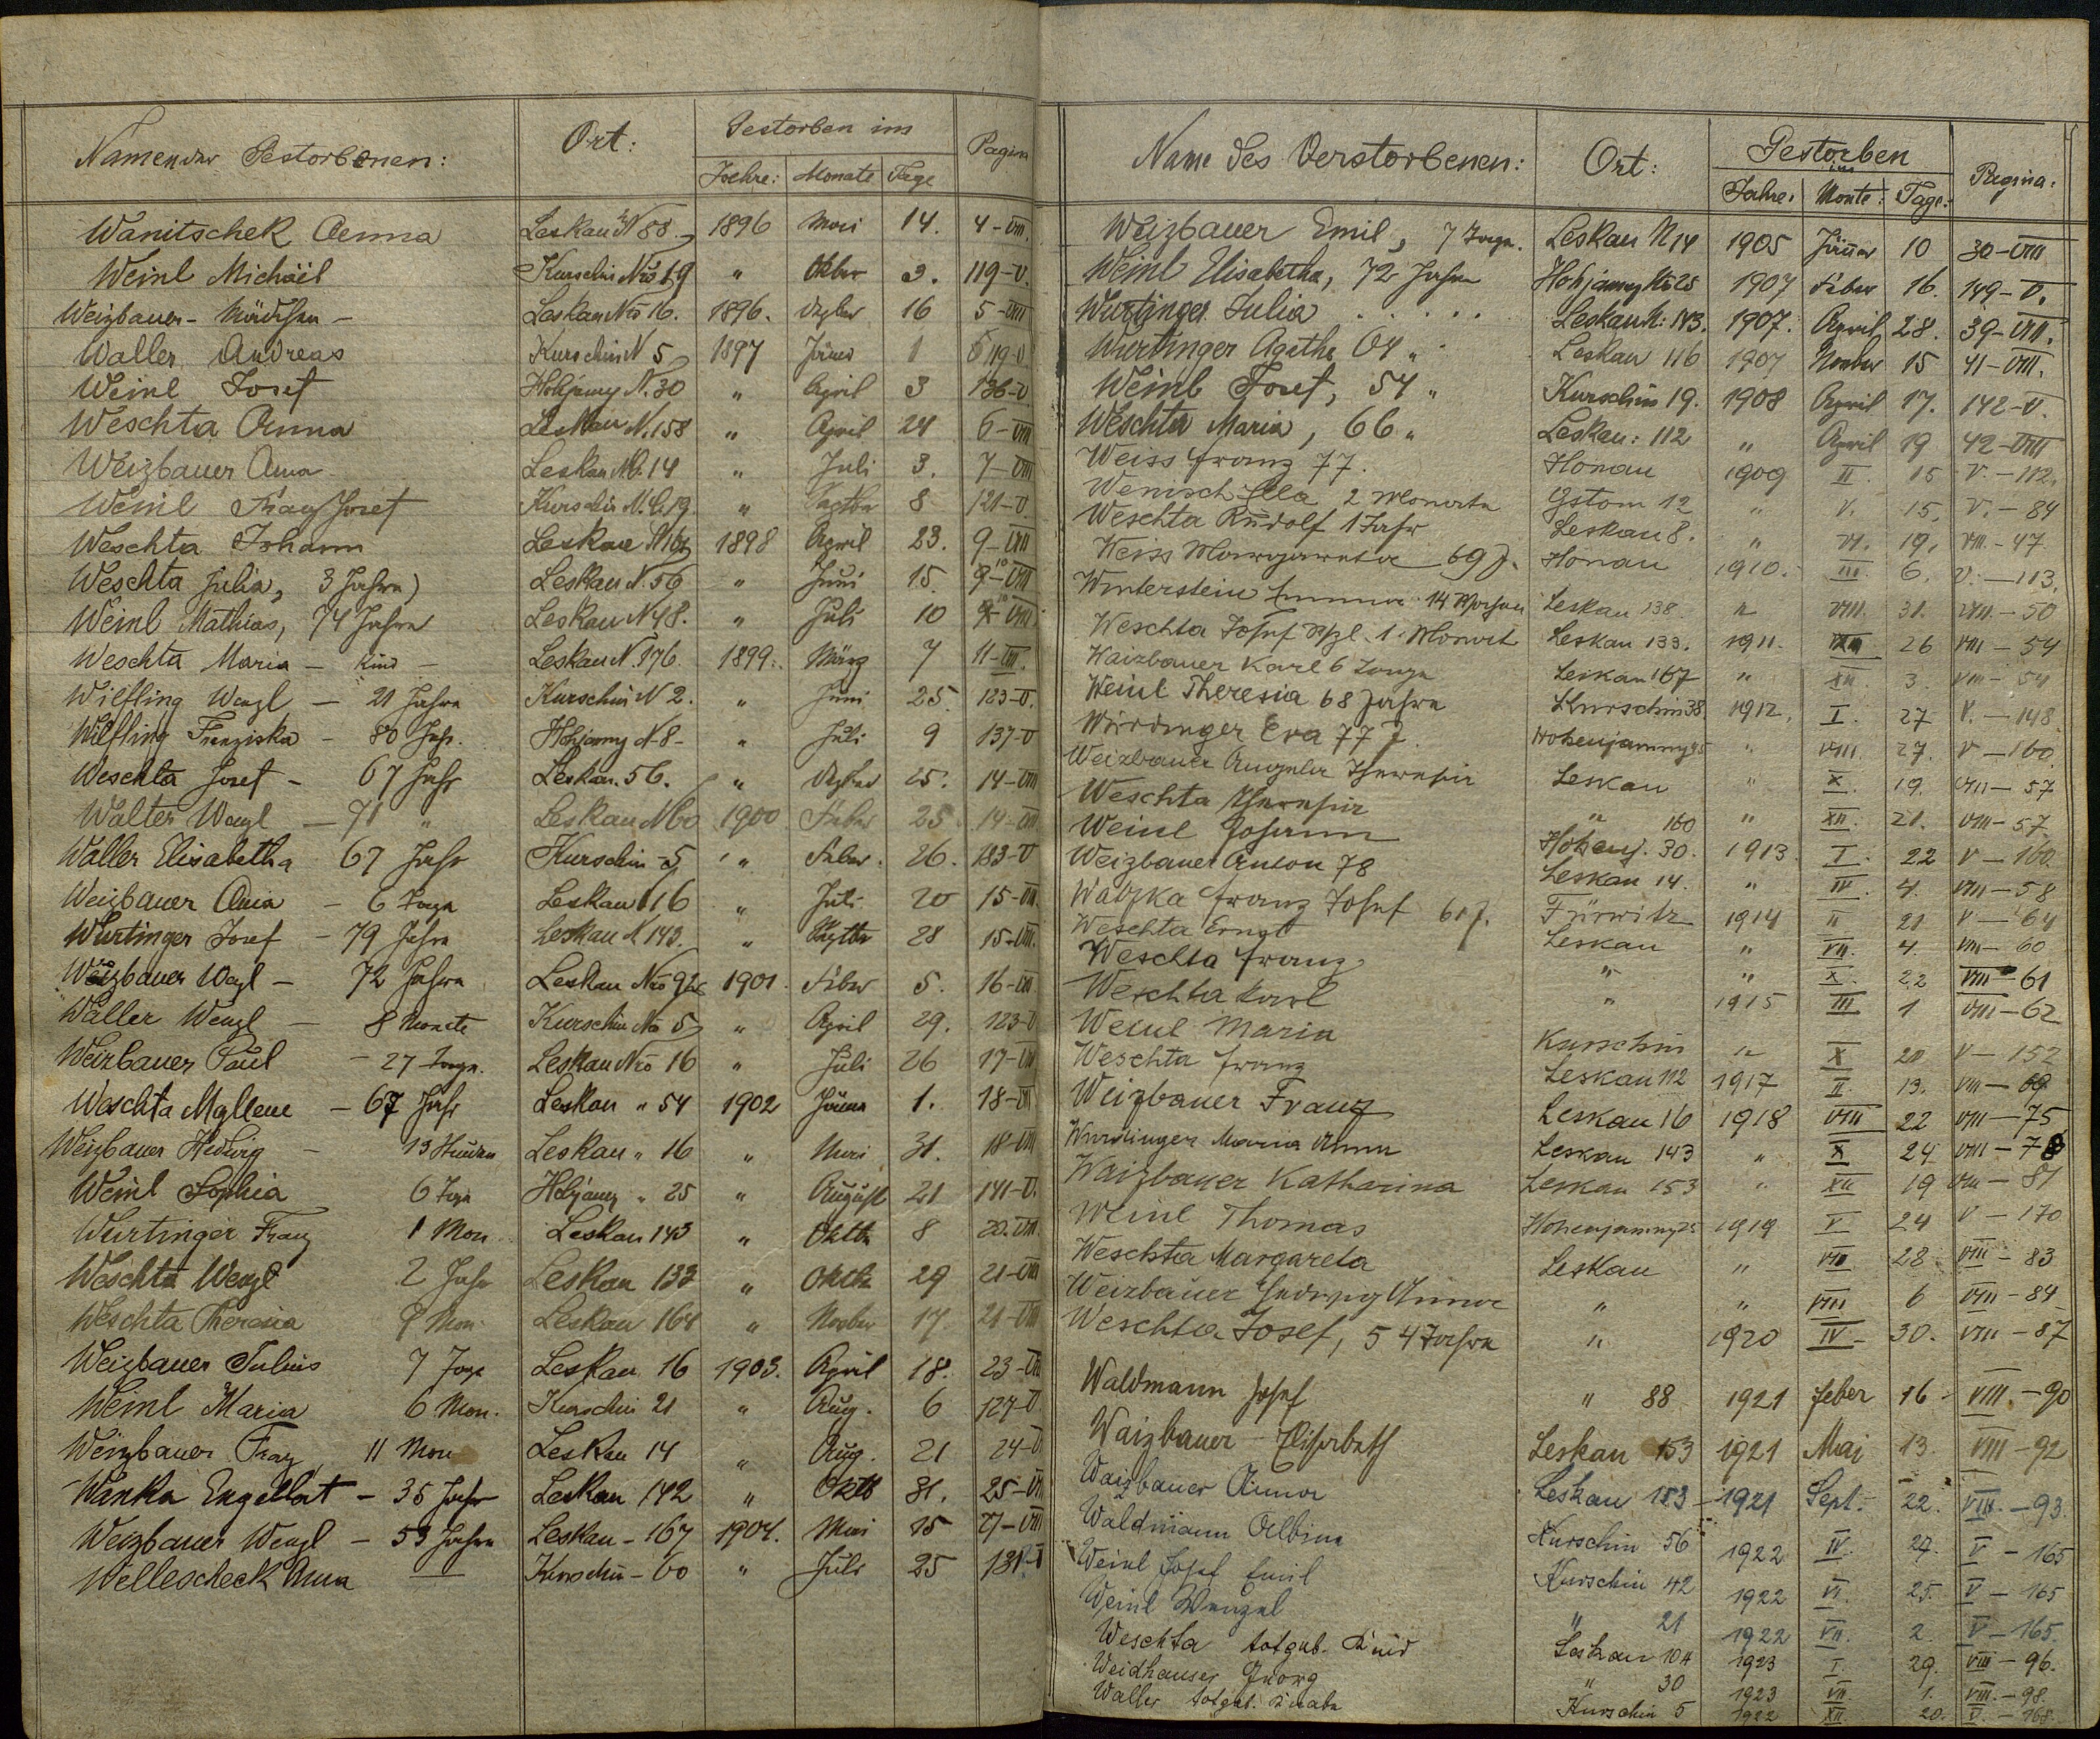 Namen der Gestorbenen: Ort: Gestorben im Pagina
Jahre: Monate Tage
Wanitschek Anna Leskau N 88. 1896 Mai 14. 4-VIII.
Weinl Michäel Kurschin Nro 19 " Okber 3. 119-V.
Weizbauer - Mädchen - Leskau Nro 16. 1896. Dezber 16 5-VIII
Waller Andreas Kurschin N 5 1897 Jäner 1 119-V
Weinl Josef Hohjamny N. 30 " April 3 136-V
Weschta Anna Leskau N. 158 " April 24 6-VIII
Weizbauer Anna Leskau N. 14 " Juli 3. 7-VIII
Weinl Franz Josef Kurschin N. C. 19. " Septbr 8 121-V
Weschta Johann Leskau 1898 April 23. 9-VIII
Weschta Julia, 3 Jahre Leskau N. 56 " Juni 15. 10-VIII
Weinl Mathias, 74 Jahre Leskau N 48. " Juli 10 10-VIII
Weschta Maria - Kind - Leskau N. 176. 1899. März 7 11-VIII.
Wilfling Wenzl - 21 Jahre Kurschin N 2. " Juni 25. 123-V
Wilfling Franziska - 80 Jahr. Hohjamny N-8- " Juli 9 137-V
Weschta Josef - 67 Jahr Leskau. 56. " Dezber 25. 14-VIII
Walter Wenzl - 71 " Leskau N 60 1900 Feber 25 14-VIII
Waller Elisabetha 67 Jahr Kurschin - 5 " Feber. 26. 123-V
Weizbauer Ania - 6 Tage Leskau 16 " Juli 20 15-VIII
Wurtinger Josef - 79 Jahre Leskau N 143. " Septbr 28 15-VIII.
Weizbauer Wenzl - 72 Jahre Leskau Nro 92 1901. Feber 5. 16-VIII
Waller Wenzl - 8 Monate Kurschin No 5 " April 29. 123-V
Weizbauer Paul - 27 Tage. Leskau Nro 16 " Juli 26 17-VIII
Weschta Magdlene - 67 Jahr Leskau " 54 1902 Jäner 1. 18-VIII
Weizbauer Hedwig - 13 Stunden Leskau " 16 " Mai 31. 18-VIII
Weinl Sophia 6 Tage Hohjamny " 25 " August 21 141-V.
Wurtinger Franz 1 Mon. Leskau 143 " Oktbr 8 20-VIII
Weschta Wenzl 2 Jahr Leskau 133 " Oktbr 29 21-VIII
Weschta Theresia 9 Mon. Leskau 164 " Novber 17 21-VIII
Weizbauer Julius 7 Tage Leskau 16 1903. April 18. 23-VIII
Weinl Maria 6 Mon. Kurschin 21 " Aug. 6 127-V.
Weizbauer Franz, 11 Mon Leskau 14 " Aug. 21 24-V
Wanka Engelbert - 35 Jahr Leskau 142 " Oktb 31. 25-VIII
Weizbauer Wenzl - 53 Jahre Leskau - 167 1904. Mai 15 27-VIII
Wellescheck Anna Kurschin - 60 " Juli 25 131-V
Name des Verstorbenen: Ort: Gestorben im Pagina.
Jahre: Monte: Tage:
Weizbauer Emil, 7 Tage. Leskau N 14 1905 Jäner 10 30-VIII
Weinl Elisabetha, 72 Jahre Hohjamny No 25 1907 Feber 16. 149-V.
Wurtinger Julia Leskau N: 143. 1907. April 28. 39-VIII.
Wurtinger Agathe 64 " Leskau 116 1907 Novber 15 41-VIII.
Weinl Josef, 54 " Kurschin 19. 1908 April 17. 142-V.
Weschta Maria, 66 " Leskau: 112 " April 19 42-VIII
Weiss Franz 77. Honau 1909 II. 15 V.-112.
Wenisch Ella 2 Monate Gstom 12 " V. 15. V.-84
Weschta Rudolf 1 Jahr Leskau 8. " VI. 19. VIII.-47
Weiss Margareta 69 J. Honau 1910. III. 6. V.-113.
Winterstein Emma 14 Wochen Leskau 138. " VIII. 31. VIII.-50
Weschta Josef Wzl. 1. Monat Leskau 133. 1911. 26 VIII-54
Waizbauer Karl 6 Tage Leskau 167 " XII. 3. VIII-54
Weinl Theresia 68 Jahre Kurschin 38. 1912. I. 27 V.-148
Wirdinger Eva 77 J. Hohenjamny 25 " VIII. 27. V-160.
Weizbauer Angela Theresia Leskau " X. 19. VIII-57
Weschta Theresia " 160 " XII. 21. VIII-57.
Weinl Johann Hohenj. 30. 1913. I. 22 V-160.
Weizbauer Anton 78 Leskau 14. " IV. 4. VIII-58
Watzka Franz Josef 61 J. Fürwitz 1914 II 21 V-64
Weschta Ernst Leskau " VII. 4. VIII-60
Weschta Franz " " X. 22 VIII-61
Weschta Karl " 1915 III 1 VIII-62
Weinl Maria Kurschin " X 20 V-152
Weschta Franz Leskau 112 1917 II. 13. VIII-69
Weizbauer Franz Leskau 16 1918 VIII 22 VIII-75
Wurdinger Maria Anna Leskau 143 " X 24 VIII-78
Waizbauer Katharina Leskau 153 " XII 19 VIII-81
Weinl Thomas Hohenjamny 25 1919 V 24 V-170
Weschta Margareta Leskau " VII 28 VIII-83
Weizbauer Hedwig Anna " " VIII 6 VIII-84
Weschta Josef, 54 Jahre " 1920 IV- 30. VIII-87
Waldmann Josef " 88 1921 Feber 16- VIII.-90
Waizbauer - Elisabeth Leskau 153 1921 Mai 13. VIII-92
Waizbauer Anna Leskau 153-1921 Sept. 22. VIII.-93.
Waldmann Albina Kurschin 56 1922 IV. 27. V-165
Weinl Josef Emil Kurschin 42 1922 VI. 25. V-165
Weinl Wenzel " 21 1922 VII. 2. V-165.
Weschta totgeb. Kind Leskau 104 1923 I. 29. VIII-96.
Weidhauser Georg " 30 1923 VII. 1. VIII.-98.
Waller totgeb. Knabe Kurschin 5 1922 XII. 20. V.-168.